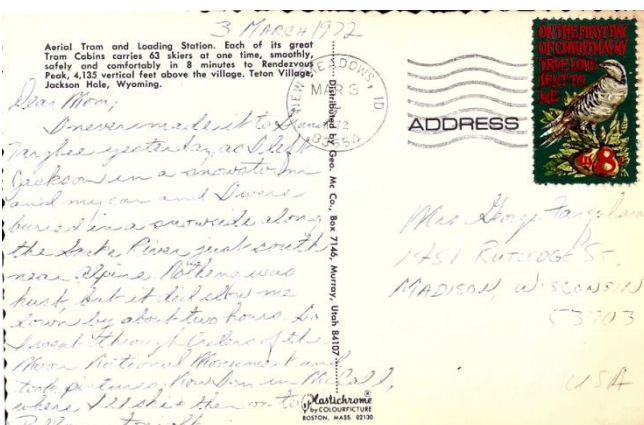 3 MARCH 1972
Aerial Tram and Loading Station. Each of its great
Tram Cabins carries 63 skiers at one time, smoothly,
safely and comfortably in 8 minutes to Rendezvous
Peak, 4,135 vertical feet above the village. Teton Village,
Jackson Hole, Wyoming.
Dear Mom,
I never made it to Grand
Targhee yesterday, as I left
Jackson in a snowstorm
and my car and I were
buried in a snowslide along
the Snake River just south
near Alpine. Nothing was
hurt, but it did slow me
down by about two hours. So
I went through Craters of the
Moon National Monument and
took pictures. Now I'm in McCall,
where I'll ski then on to
tonight
Distributed by Geo. Mc Co., Box 7146, Murray, Utah 84107
Plastichrome
by COLOURPICTURE
BOSTON, MASS. 02130
NEW MEADOWS, ID
MAR 3
1972
83654
ADDRESS
ON THE FIRST DAY
OF CHRISTMAS MY
TRUE LOVE
SENT TO
ME
US 8c
Mrs George
1451 RUTLEDGE ST.
MADISON, WISCONSIN
53703
USA